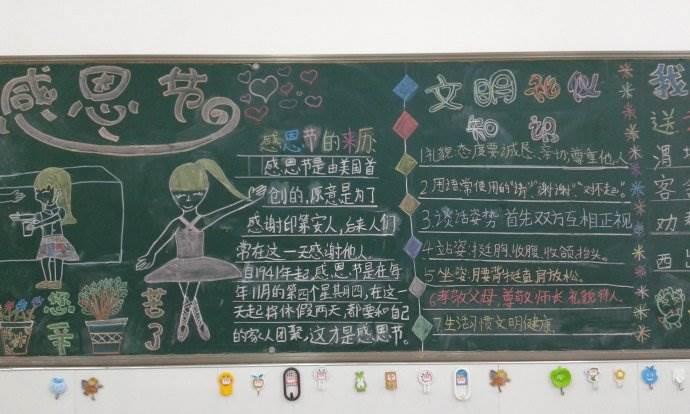 感恩节
您辛
苦了
感恩节的来历
感恩节是由美国首
创的,原意是为了
感谢印第安人,后来人们
常在这一天感谢他人。
自1941年起,感恩节是在每
年11月的第四个星期四,在这一
天起将休假两天,都要和自己
的家人团聚,这才是感恩节。
文明礼仪
知识
1.礼貌:态度要诚恳、亲切,尊重他人
2.用语:常使用的"请""谢谢""对不起"
3.谈话姿势:首先双方互相正视
4.站姿:挺胸,收腹,收颌,抬头。
5坐姿:腰背挺直,肩放松。
6孝敬父母 尊敬师长 礼貌待人
7.生活习惯文明健康
我
送
渭
客
劝
西